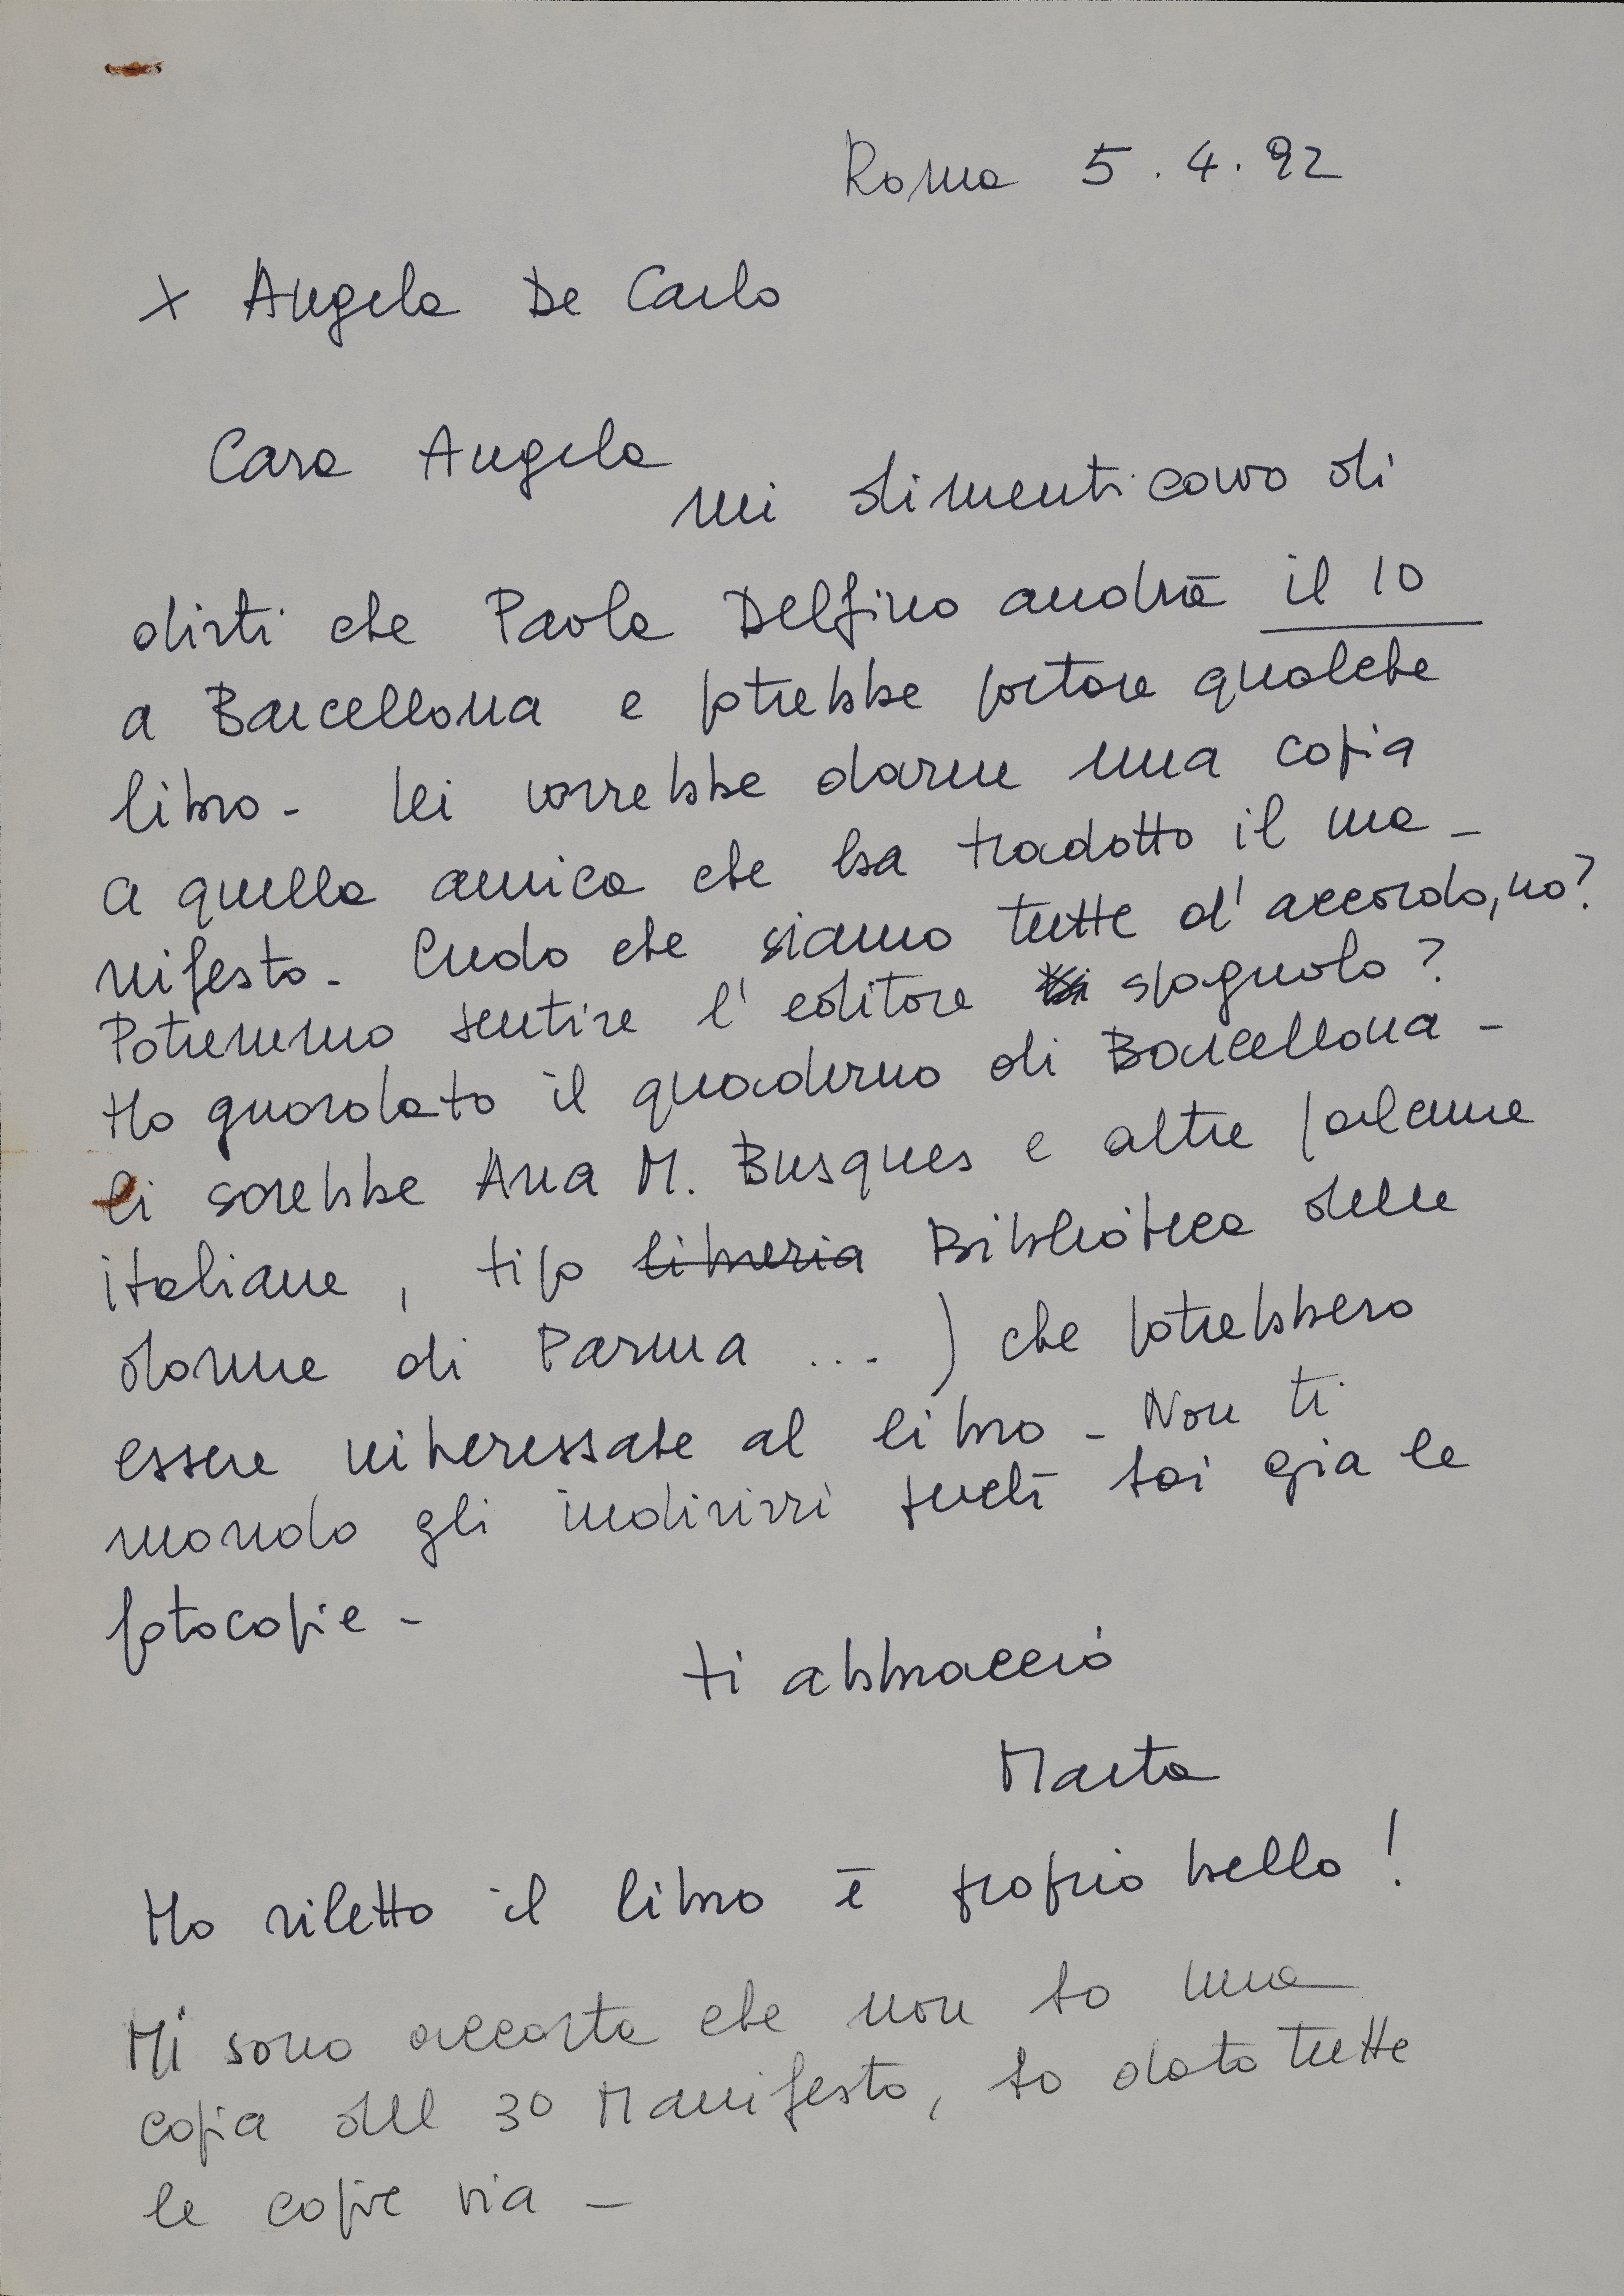 Roma 5.4.92
x Angela De Carlo
Cara Angela
mi dimenticavo di
dirti che Paola Delfino andrà il 10
a Barcellona e potrebbe portare qualche
libro - lei vorrebbe darne una copia
a quella amica che ha tradotto il ma-
nifesto - Credo che siamo tutte d'accordo, no?
Potremmo sentire l'editore spagnolo?
Ho guardato il quaderno di Barcellona -
Ci sarebbe Ana M. Busques e altre (alcune
italiane, tipo libreria Biblioteca delle
donne di Parma ...) che potrebbero
essere interessate al libro - Non ti
mando gli indirizzi perché hai già le
fotocopie -
ti abbraccio
Marta
Ho riletto il libro è proprio bello!
Mi sono accorta che non ho una
copia del 3º Manifesto, ho dato tutte
le copie via -